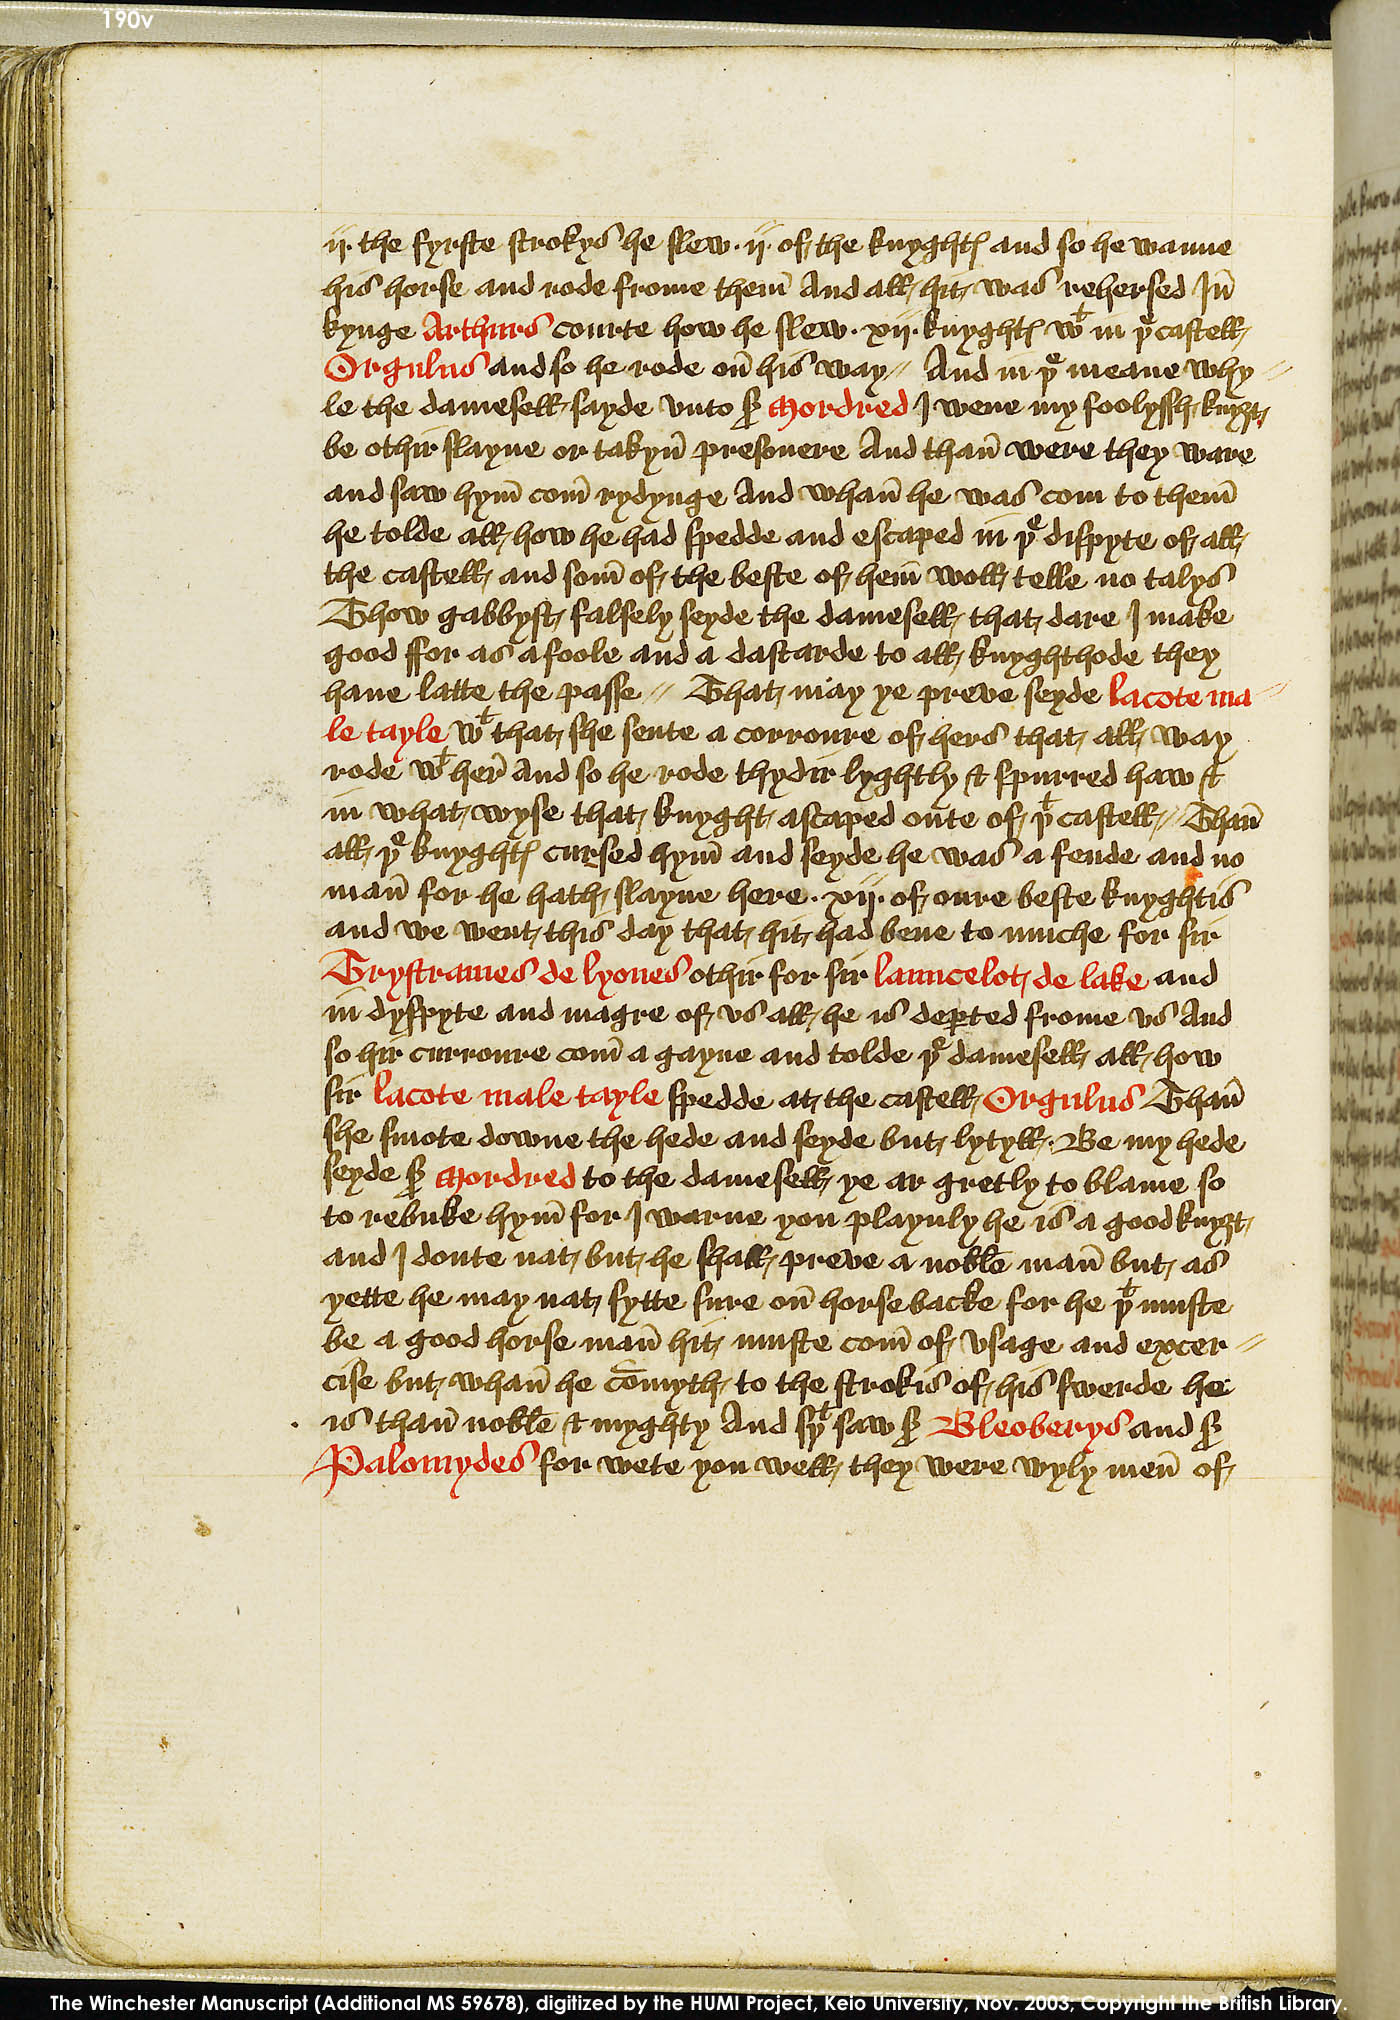 190v
ij. the fyrste strokys he slew . ij . of the knyghtꝭ and so he wanne
his horse and rode frome them̄ And all hit was rehersed Jn̄
kynge Arthurs courte how he slew . xij . knyghtꝭ wᵗ in þᵉ castell
Orgulus and so he rode on̄ his way // And in þᵉ meane why //
le the damesell sayde vnto ẜ Mordred J wene my foolyssh knyȝt
be othir slayne or takyn̄ presonere And than̄ were they ware
and saw hym̄ com̄ rydynge And whan̄ he was com to them̄
he tolde all how he had spedde and escaped in þᵉ dispyte of all
the castell and som̄ of the beste of hem̄ woll telle no talys
Thow gabbyst falsely seyde the damesell that dare J make
good ffor as a foole and a dastarde to all knyghthode they
haue latte the passe // That may ye preve seyde lacote ma //
le tayle wᵗ that she sente a corroure of hers that all way
rode wᵗ her̄ And so he rode thydir lyghtly & spurred haw &
in what wyse that knyght ascaped oute of þᵗ castell // Than̄
all þᵉ knyghtꝭ cursed hym̄ and seyde he was a fende and no
man̄ for he hath slayne here . xij . of oure beste knyghtis
and we went this day that hit had bene to muche for sir
Trystrames de lyones othir for sir launcelot de lake and
in dyspyte and magre of vs all he is deꝑted frome vs And
so hir curroure com̄ a gayne and tolde þᵉ damesell all how
sir lacote male tayle spedde at the castell Orgulus Than̄
she smote downe the hede and seyde but lytyll . Be my hede
seyde ẜ Mordred to the damesell ye ar gretly to blame so
to rebuke hym̄ for J warne you playnly he is a good knyȝt
and J doute nat but he shall preve a noble man̄ but as
yette he may nat sytte sure on̄ horsebacke for he þᵗ muste
be a good horse man̄ hit muste com̄ of vsage and excer //
cise but whan̄ he co̅myth to the strokis of his swerde he
is than̄ noble & myghty And þᵗ saw ẜ Bleoberys and ẜ
Palomydes for wete you well they were wyly men̄ of
The Winchester Manuscript (Additional MS 59678), digitized by the HUMI Project, Keio University, Nov. 2003, Copyright the British Library.